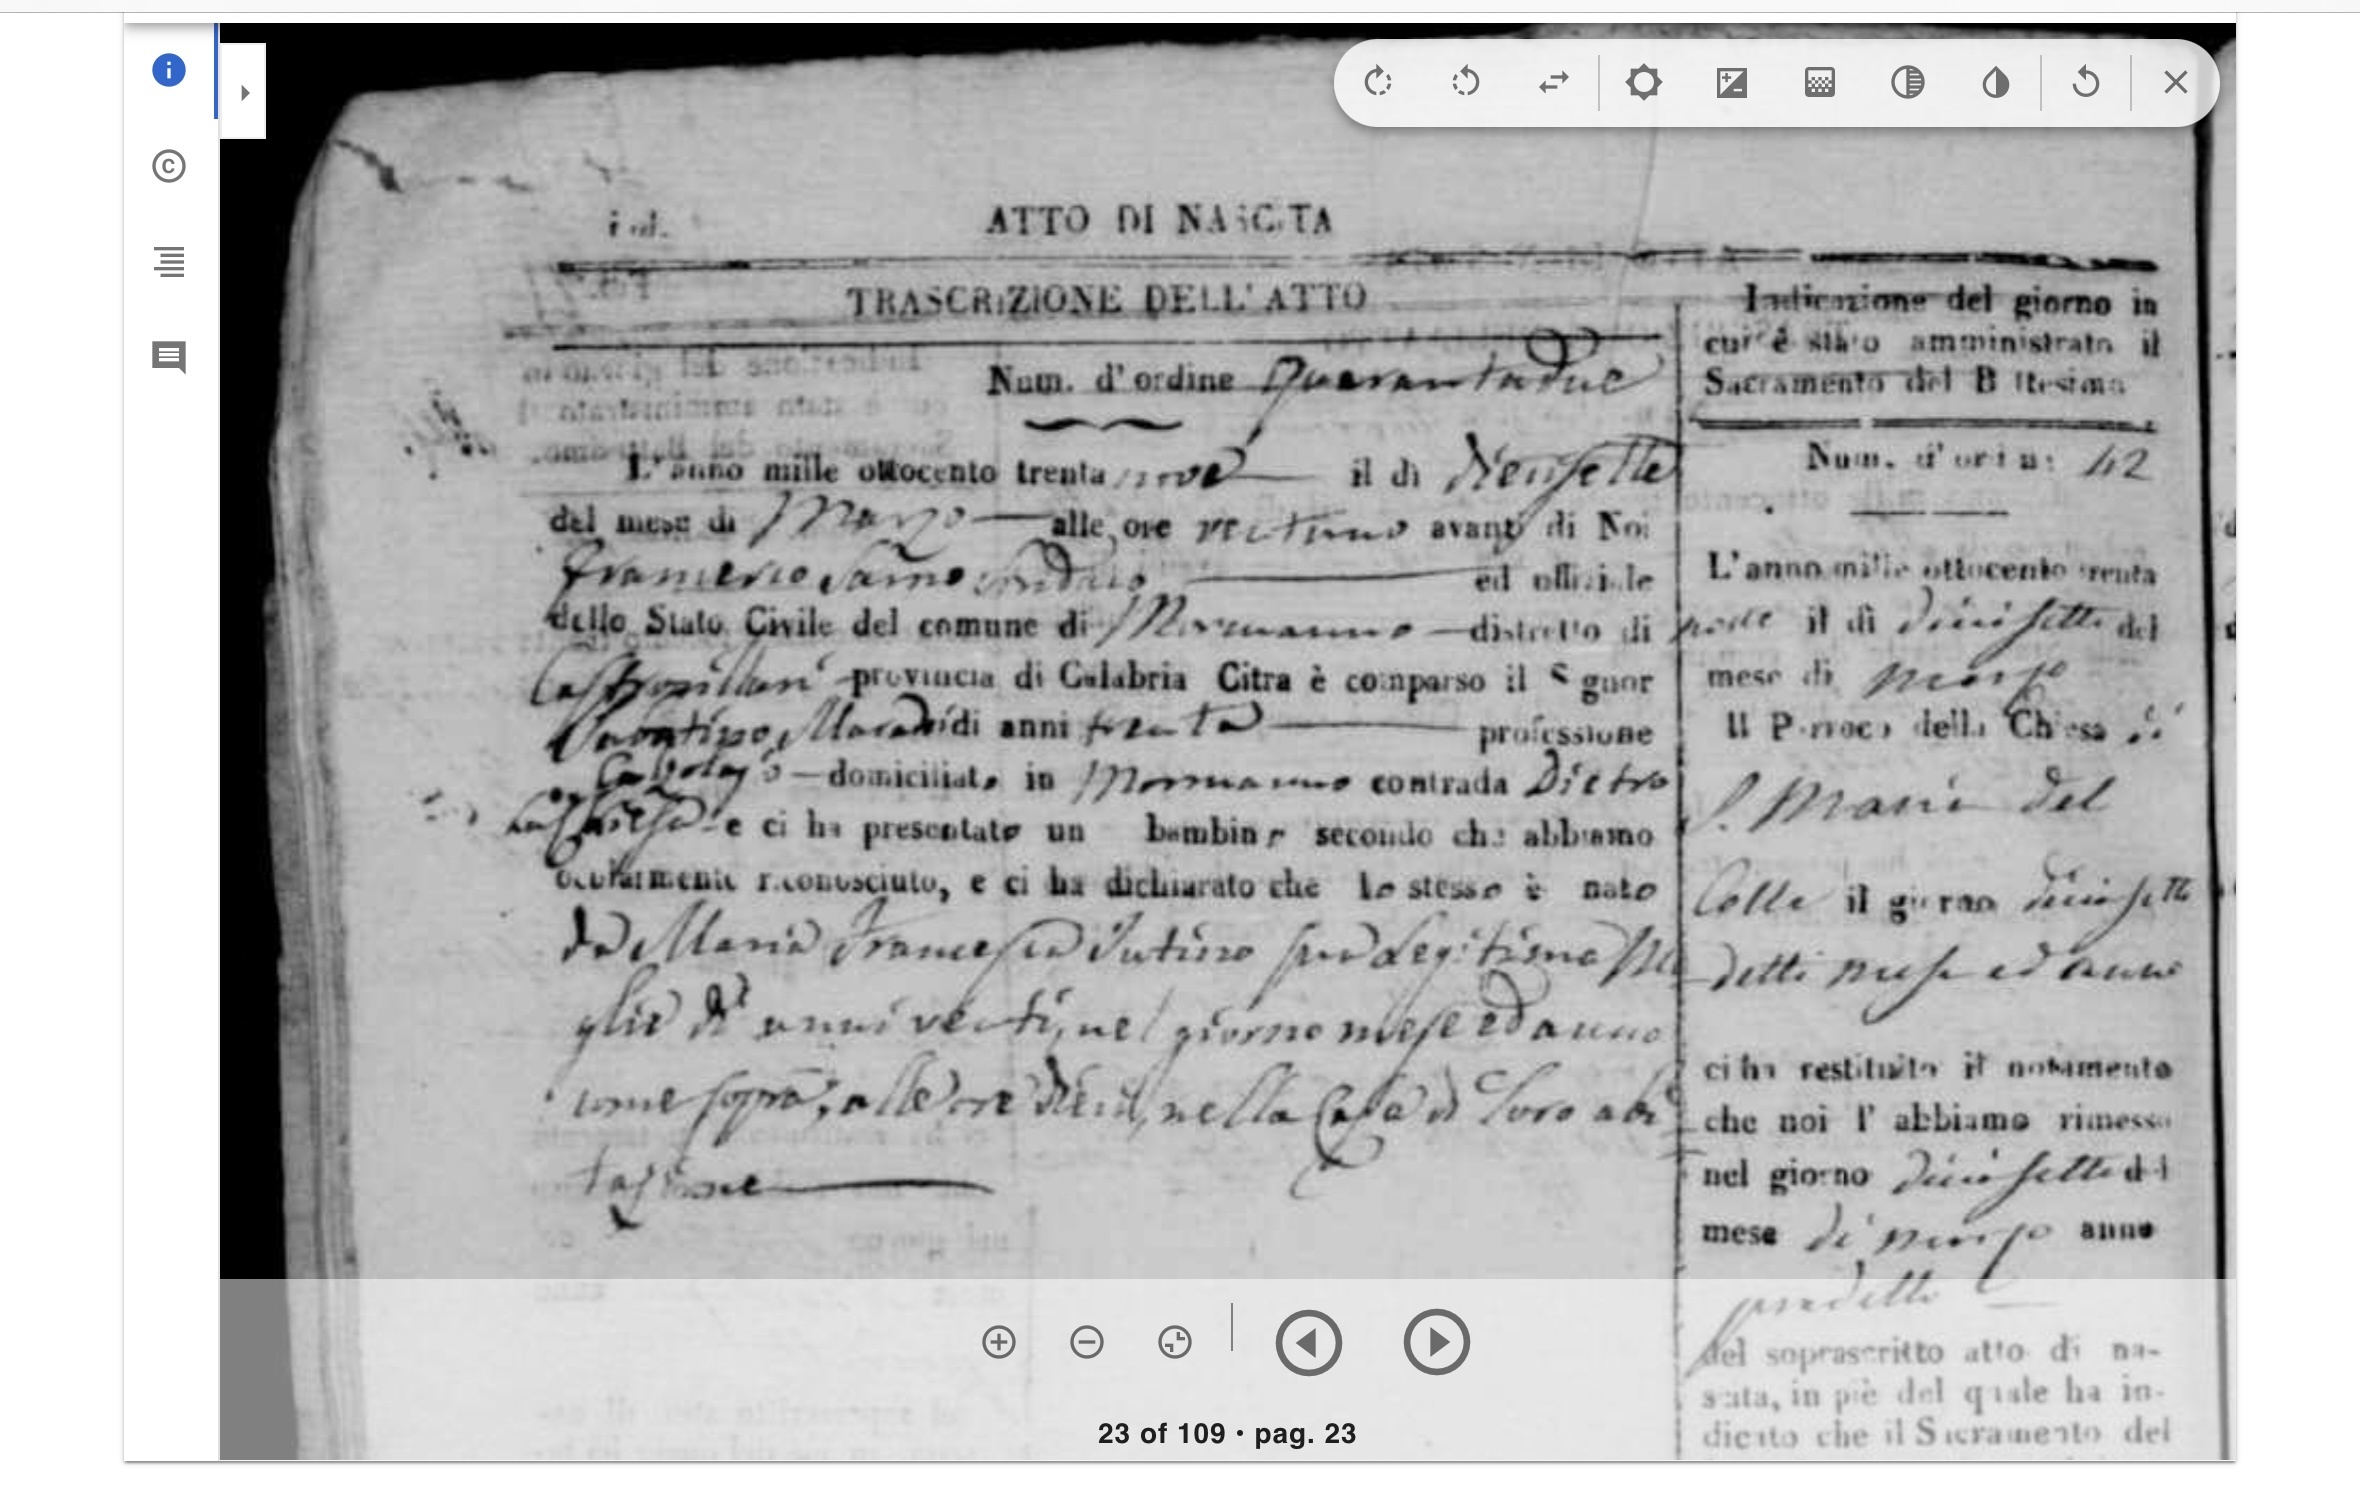 ATTO DI NASCITA
TRASCRIZIONE DELL' ATTO
Num. d' ordine Quarantadue
L'anno mille ottocento trenta nove il dì diensette
del mese di Marzo alle ore ventuno avanti di Noi
Francesco Sarno Sindaco ed officiale
dello Stato Civile del comune di Mormanno distretto di
Castrovillari provincia di Calabria Citra è comparso il Signor
di anni trenta professione
domiciliato in Mormanno contrada Dietro
la Chiesa e ci ha presentato un bambino secondo che abbiamo
ocularmente riconosciuto, e ci ha dichiarato che lo stesso è nato
da Maria Francesca sua legitima Mo
glie di anni venti, nel giorno mese ed anno
come sopra, alle ore dieci, nella Casa di loro abi
tazione
Indicazione del giorno in
cui è stato amministrato il
Sacramento del Battesimo
Num. d'ordine 42
L'anno mille ottocento trenta
nove il dì diecisette del
mese di marzo
Il Parroco della Chiesa di
S. Maria del
Colle il giorno diecisette
detti mese ed anno
ci ha restituito il notamento
che noi l' abbiamo rimesso
nel giorno diecisette del
mese di marzo anno
predetto
del soprascritto atto di na-
scita, in piè del quale ha in-
dicato che il Sacramento del
23 of 109 • pag. 23